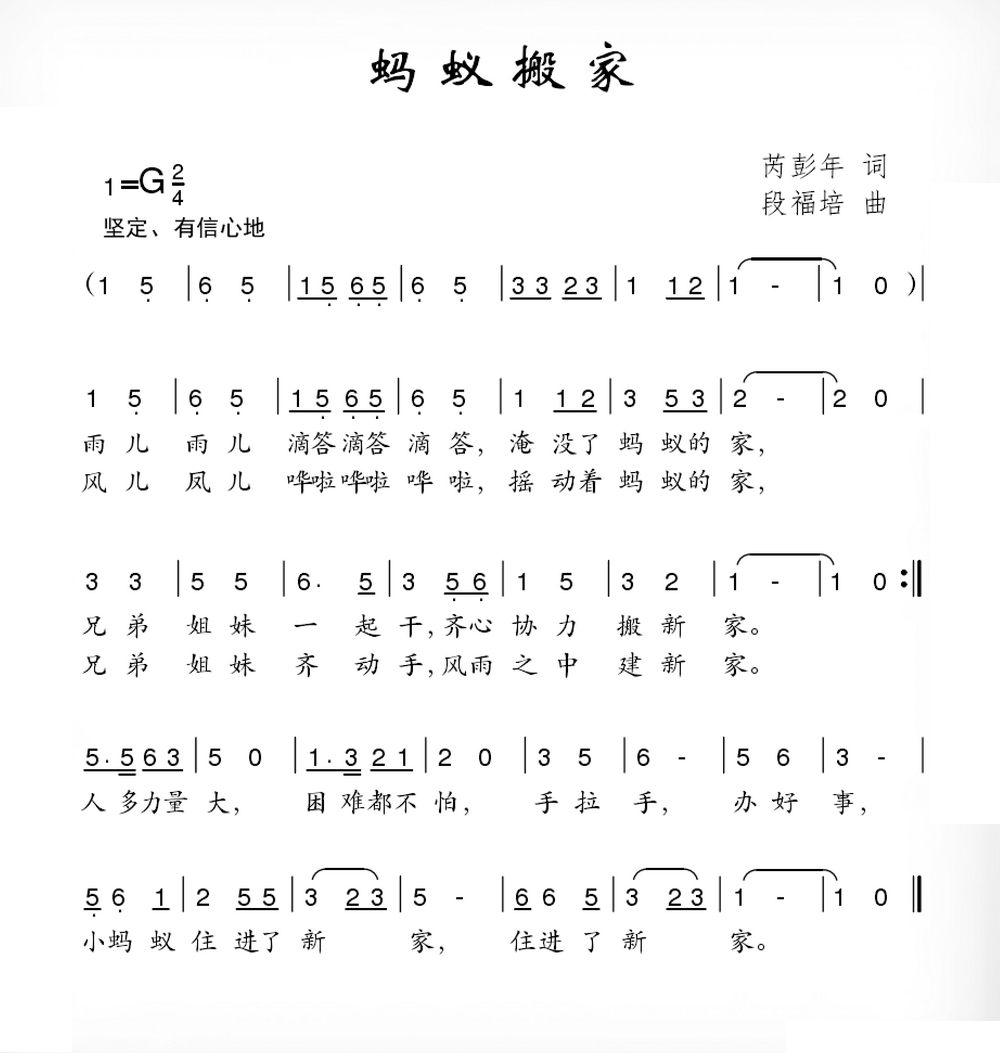 蚂蚁搬家
芮彭年 词
1=G 2/4
段福培 曲
坚定、有信心地
(1 5 | 6 5 | 15 65 | 6 5 | 33 23 | 1 12 | 1 - | 1 0 )|
1 5 | 6 5 | 15 65 | 6 5 | 1 12 | 3 53 | 2 - | 2 0 |
雨儿 雨儿 滴答滴答 滴答, 淹没了蚂蚁的家,
风儿 凤儿 哗啦哗啦 哗啦, 摇动着蚂蚁的家,
3 3 | 5 5 | 6· 5 | 3 56 | 1 5 | 3 2 | 1 - | 1 0 :||
兄弟姐妹一起干,齐心协力搬新家。
兄弟姐妹齐动手,风雨之中建新家。
5·563 | 5 0 | 1·321 | 2 0 | 3 5 | 6 - | 5 6 | 3 - |
人多力量大, 困难都不怕, 手拉手, 办好事,
56 1 | 2 55 | 3 23 | 5 - | 66 5 | 3 23 | 1 - | 1 0 ||
小蚂蚁住进了新家, 住进了新家。